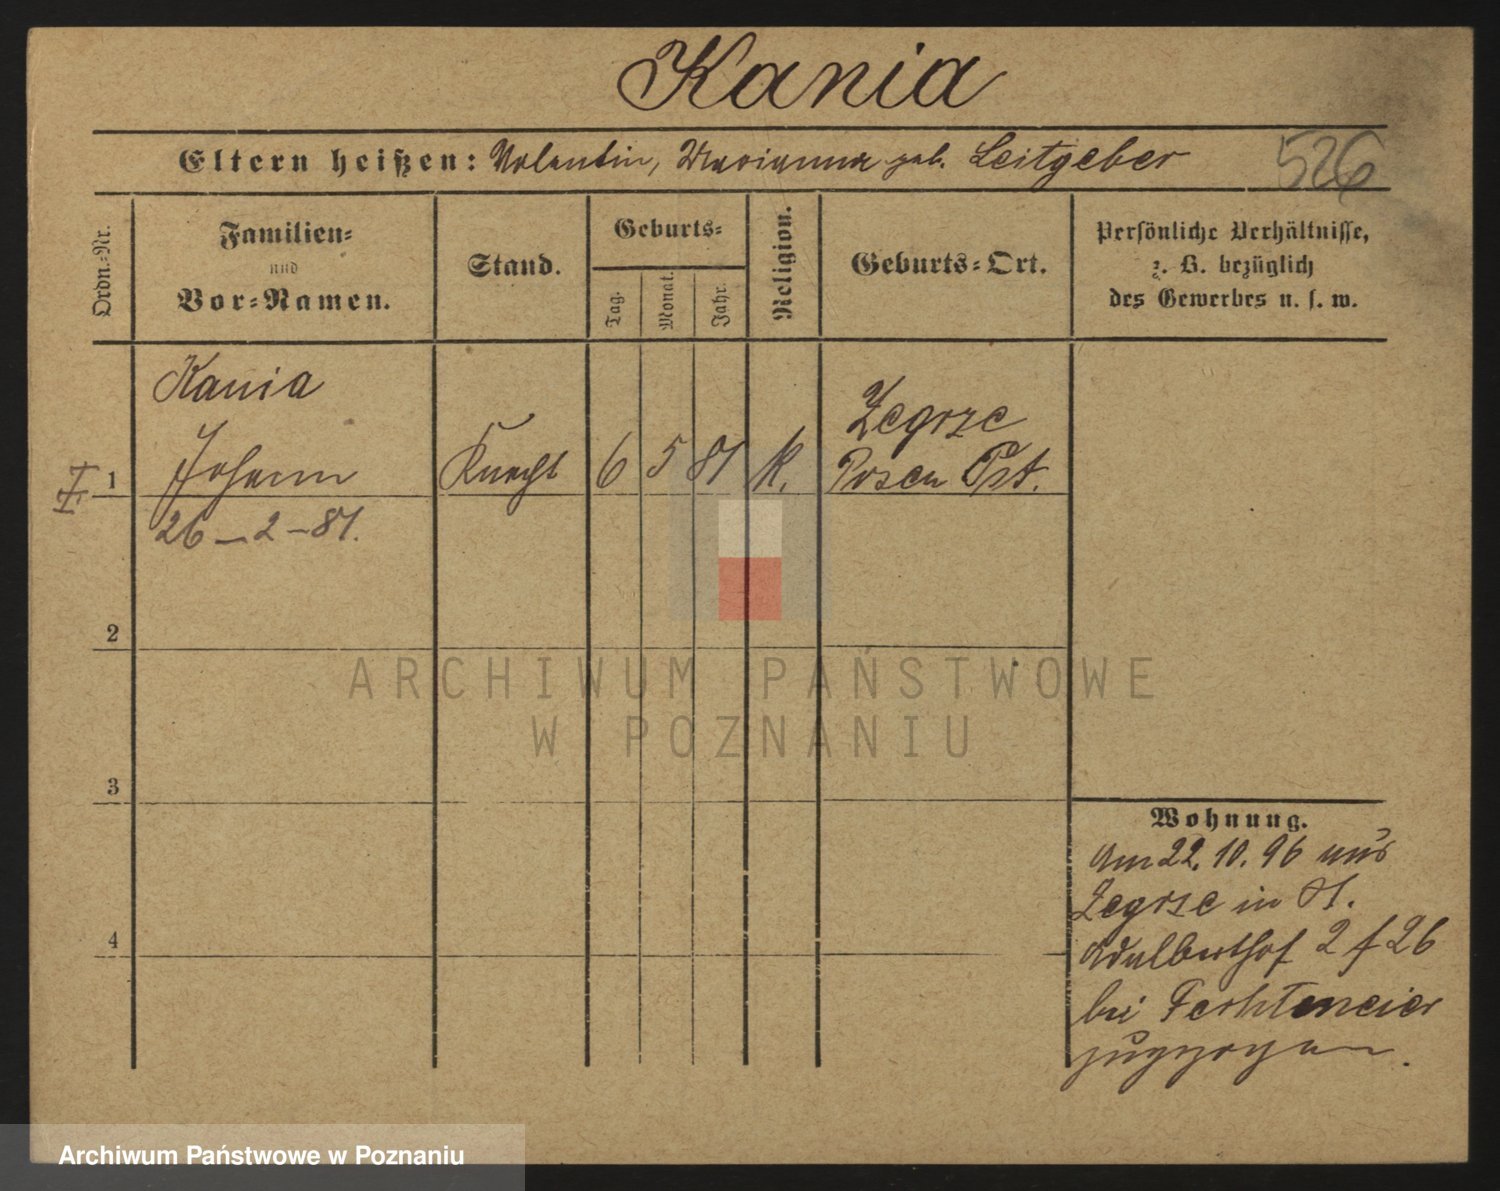 Kania
Eltern heißen: Valentin, Marianna geb. Leitgeber
526
Ordn.-Nr.
Familien-
und
Vor-Namen.
Stand.
Geburts-
Tag.
Monat.
Jahr.
Religion.
Geburts-Ort.
Persönliche Verhältnisse,
z. B. bezüglich
des Gewerbes u. s. w.
Kania
Johann
I
1
Knecht
6
5
81
K.
Zegrze
Posen Ost.
26-2-81.
2
3
4
Wohnung.
Am 22. 10. 96 aus
Zegrze in St.
Adalberthof 2 f 26
bei
zugezogen.
ARCHIWUM PAŃSTWOWE
W POZNANIU
Archiwum Państwowe w Poznaniu